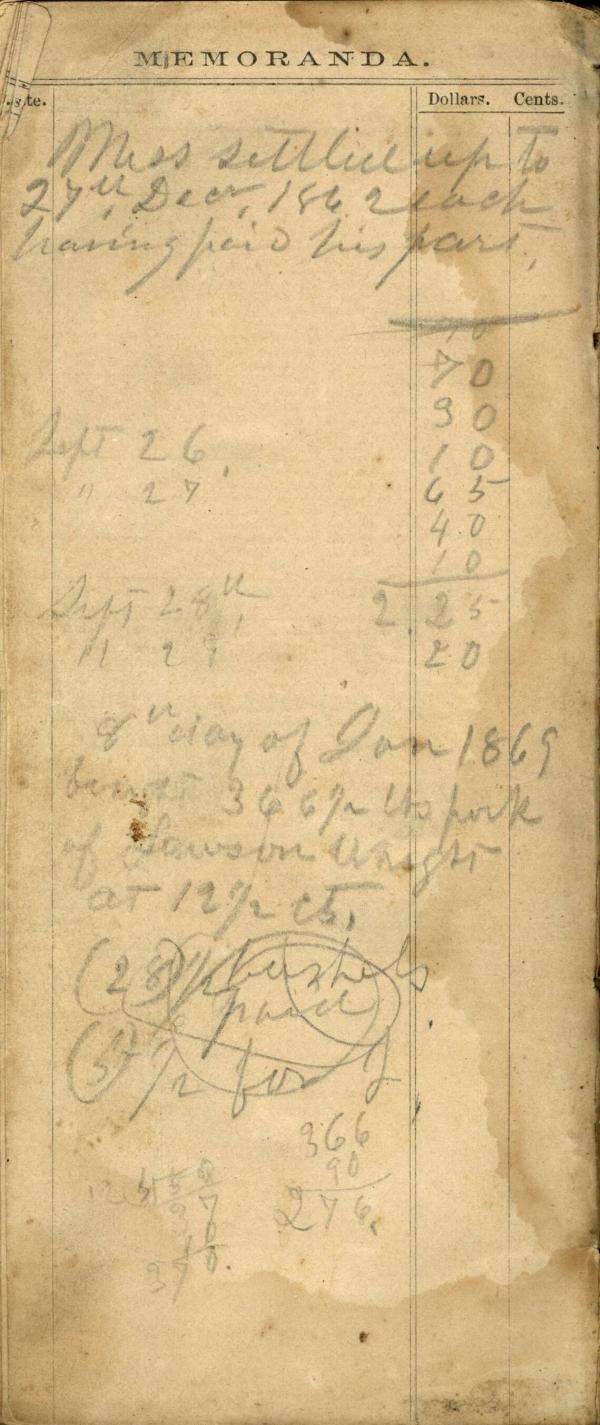 MEMORANDA.
Dollars. Cents.
Mess settled up to
27th, Decr, 1862 each
having paid his part,
70
90
Sept 26, 10
" 27 65
40
10
Sept 28th, 2.25
" 29, 20
8th day of Jan 1869
bought 366 1/2 lbs pork
of Lawson Wright
at 12 1/2 cts,
(28) 1/2 bushels
paid
(5) 1/2 for
366
90
276.